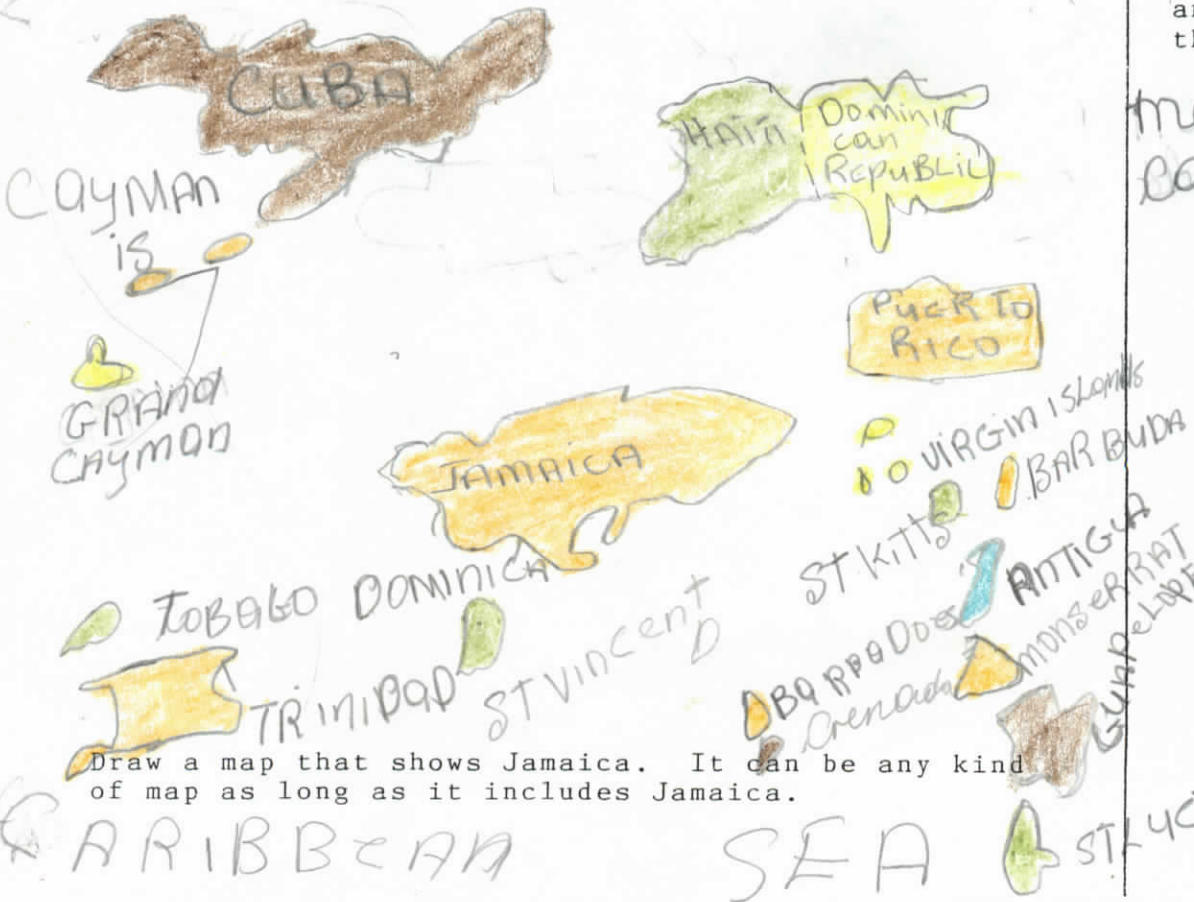 CUBA
HAITI
Domini
can
REPUBLIC
CAYMAN
is
PUERTO
RICO
GRAND
CAYMAN
JAMAICA
VIRGIN ISLANDS
BARBUDA
ST KITTS
ANTIGUA
TOBAGO
DOMINICA
MONSERRAT
ST VINCENT
BARBADOES
Grenada
TRINIDAD
Draw a map that shows Jamaica. It can be any kind
of map as long as it includes Jamaica.
CARIBBEAN SEA